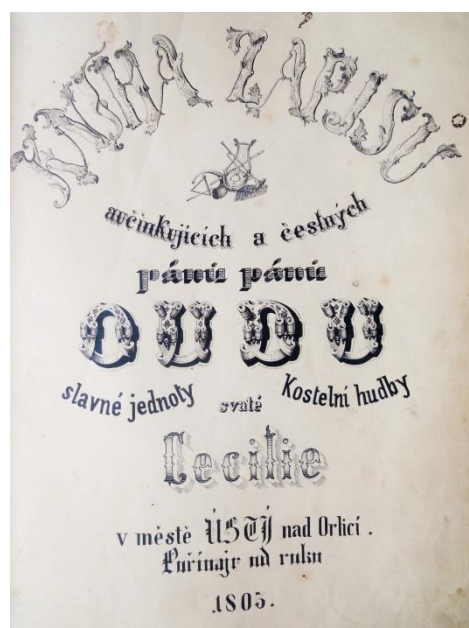 KNIHA ZÁPISU
aučinkujících a čestných
pánů pánů
OUDU
slavné jednoty
svaté
Kostelní hudby
Cecilie
v městě ÚSTÍ nad Orlicí.
od roku
1803.